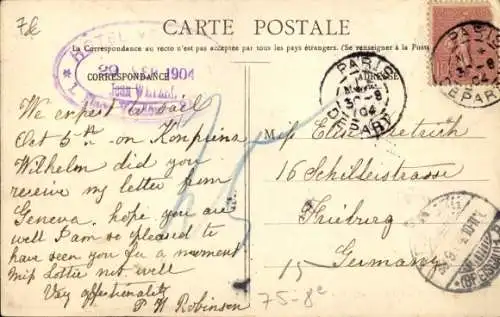 75c
CARTE POSTALE
La Correspondance au recto n'est pas acceptée par tous les pays étrangers. (Se renseigner à la Poste
CORRESPONDANCE
ADRESSE
HOTEL
29 1904
Jean
PARIS
30-8
04
DEPART
PARIS
04
DEPART
We expect to sail
Oct 5th on Konprinz
Wilhelm did you
receive my letter from
Geneva. hope you are
well I am so pleased to
have seen you for a moment
Miss Lottie not well
Very affectionately
P W Robinson
Miss Dietrich
16 Schillerstrasse
Frieburg
Germany
15
75-8e